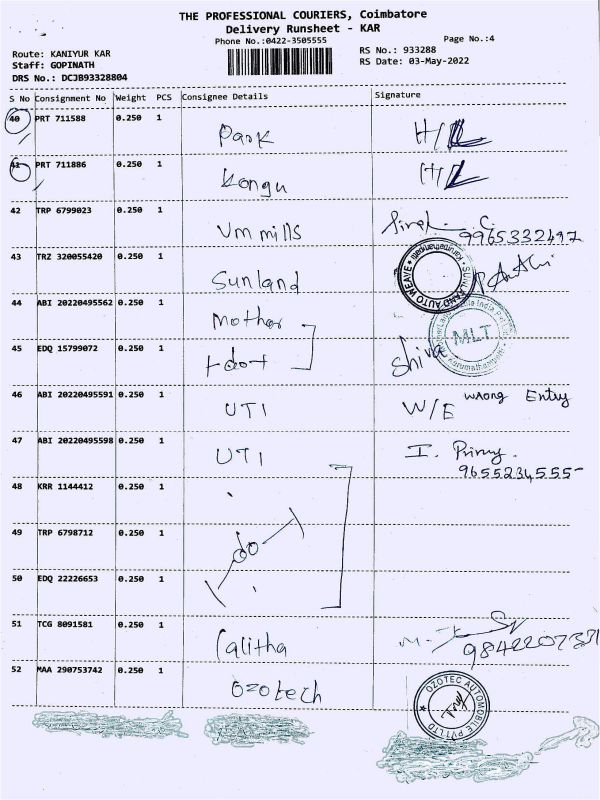 THE PROFESSIONAL COURIERS, Coimbatore
Delivery Runsheet - KAR
Phone No.:0422-3505555
Page No.:4
Route: KANIYUR KAR
RS No.: 933288
Staff: GOPINATH
RS Date: 03-May-2022
DRS No.: DCJB93328804
S No Consignment No Weight PCS Consignee Details Signature
40 PRT 711588 0.250 1 Park H/L
41 PRT 711886 0.250 1 Kongu H/L
42 TRP 6799023 0.250 1 Vm mills
9965332497
43 TRZ 320055420 0.250 1 Sunland
SUNLAND AUTO WEAVE
44 ABI 20220495562 0.250 1 Mother
MLT
45 EDQ 15799072 0.250 1 +do+ Shiva
46 ABI 20220495591 0.250 1 UTI W/E wrong Entry
47 ABI 20220495598 0.250 1 UTI I.
9655234555
48 KRR 1144412 0.250 1
49 TRP 6798712 0.250 1 do
50 EDQ 22226653 0.250 1
51 TCG 8091581 0.250 1 Lalitha
52 MAA 290753742 0.250 1 Ozotech
OZOTEC AUTOMOBILE PVT LTD